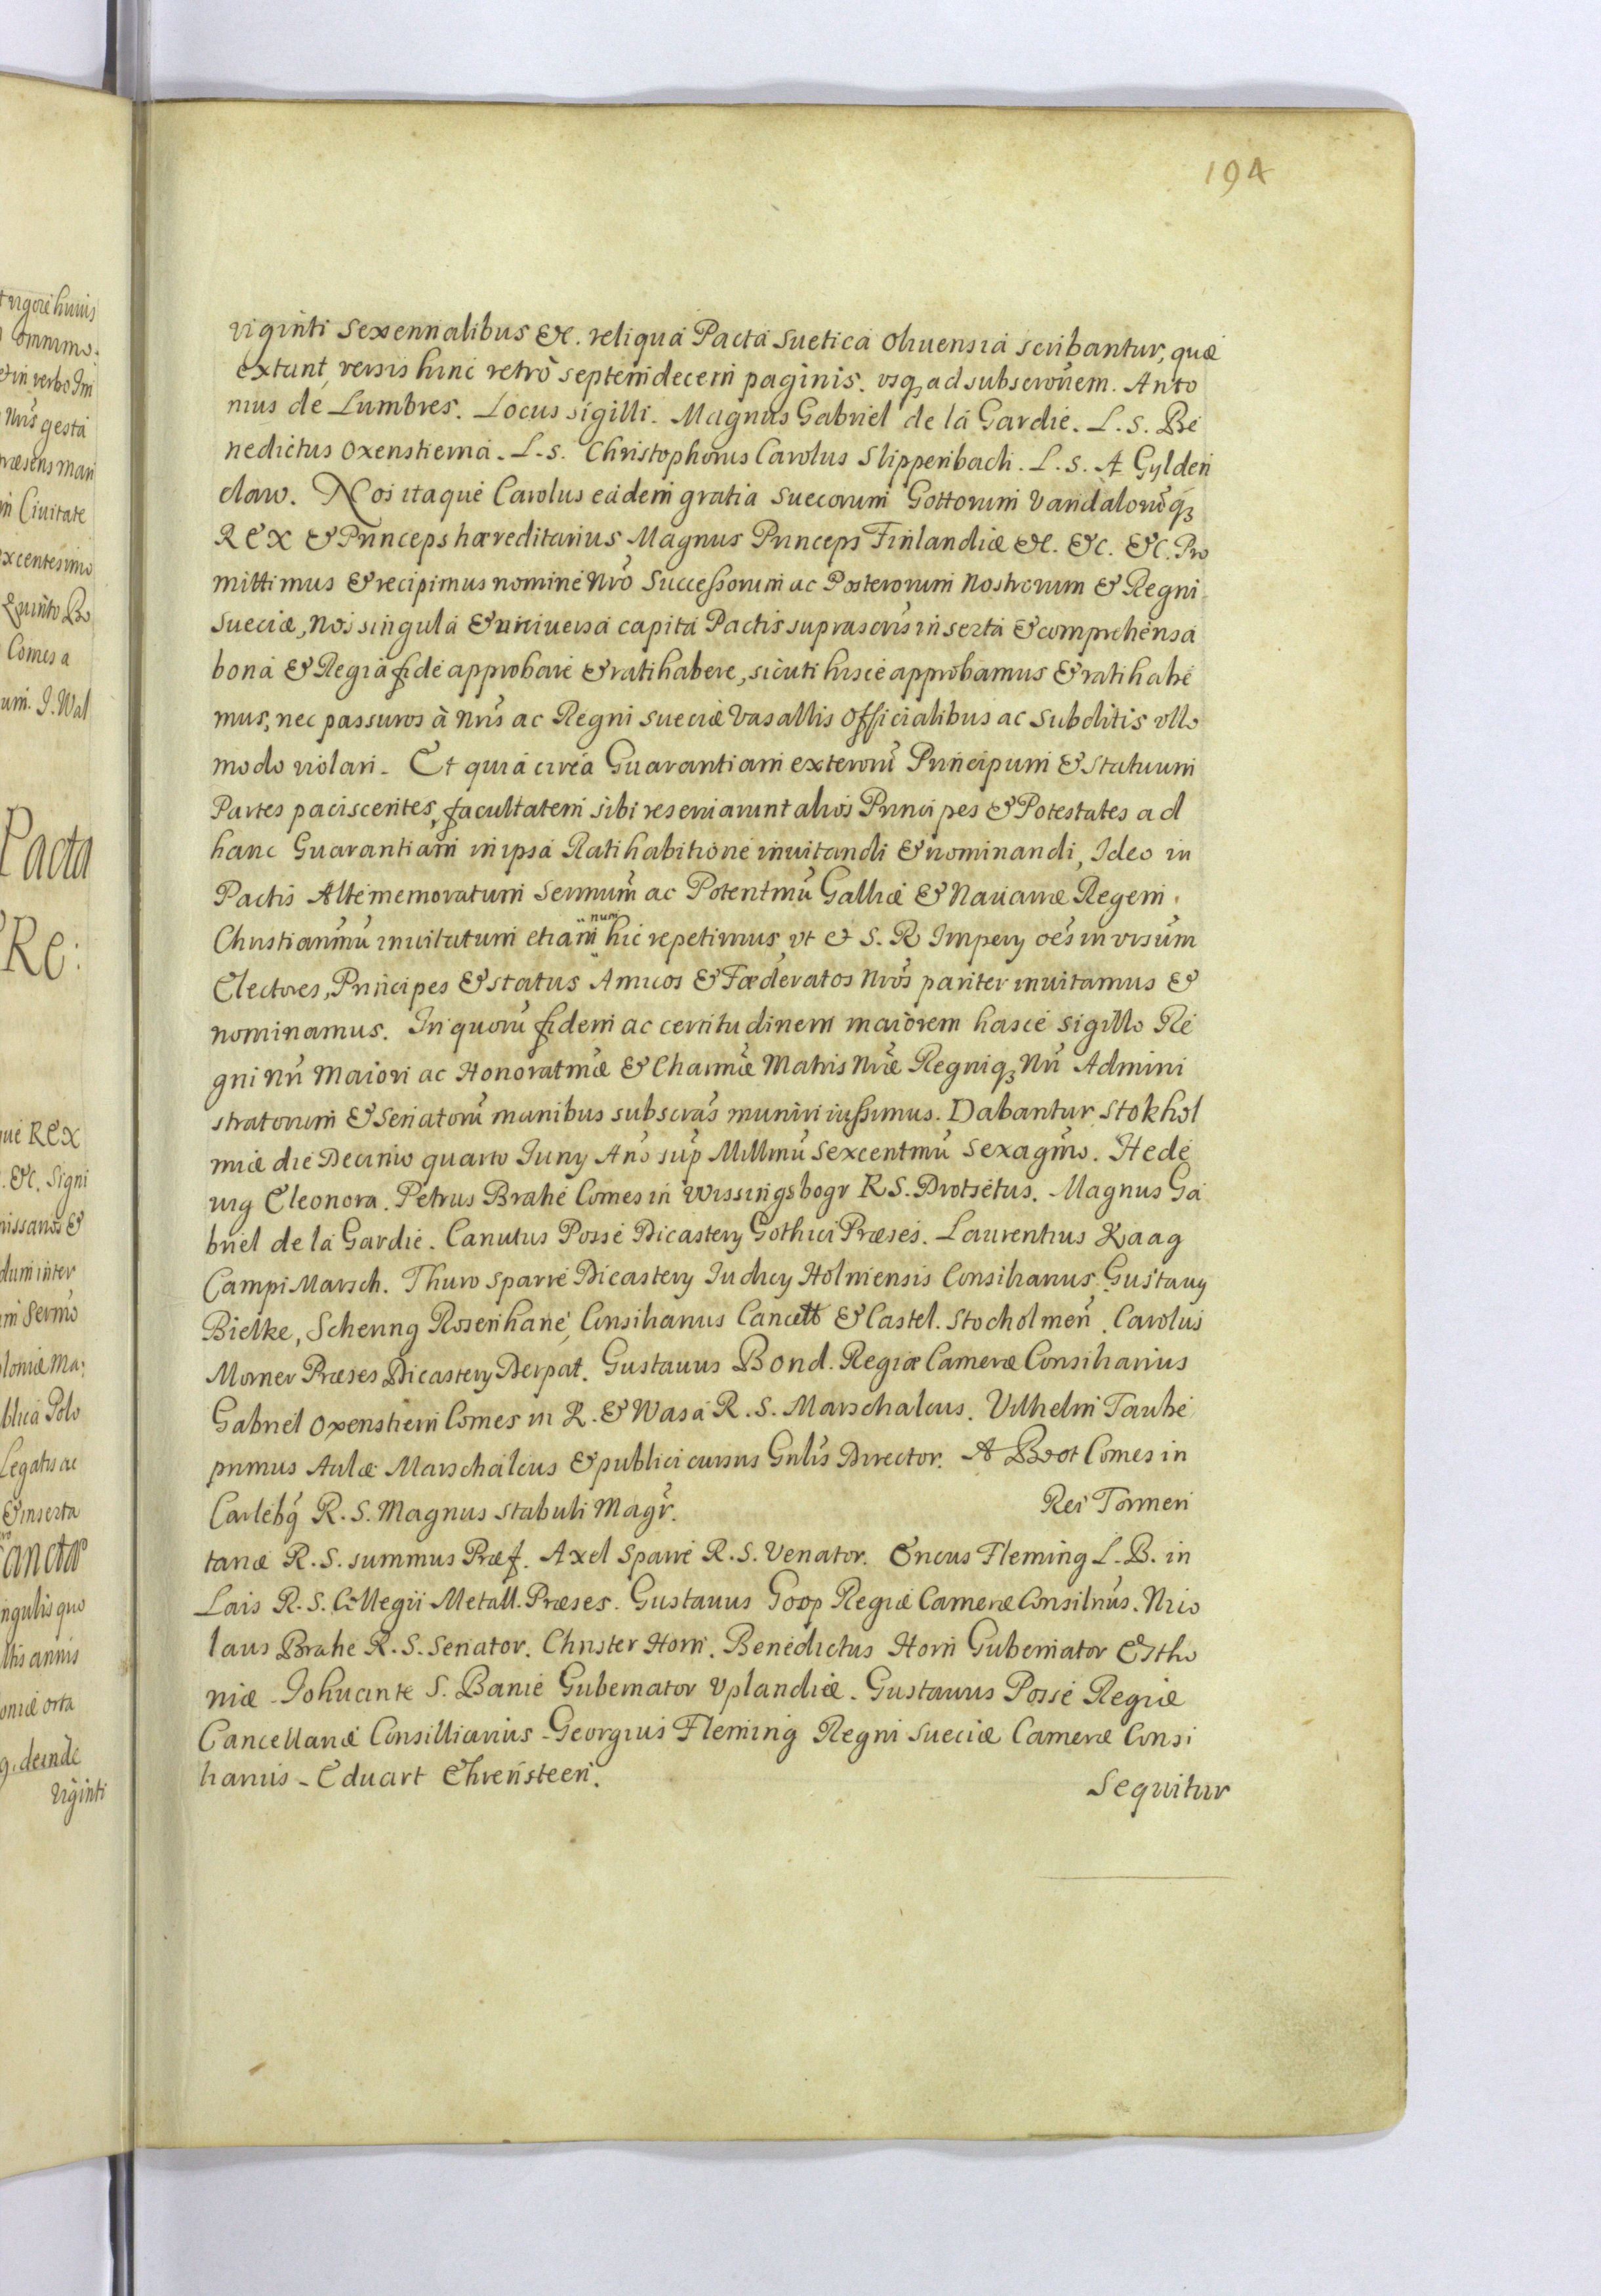 194
viginti sexennalibus &c. reliqua Pacta Suetica Oliuensia scribantur, quæ
extant, versis hinc retrò septemdecem paginis. vsq3 ad subscrõnem. Anto
nius de Lumbres. Locus sigilli. Magnus Gabriel de la Gardie. L. S. Be
nedictus Oxenstierna. L. S. Christophorus Carolus Slippenbach. L. S. A Gylden
claw. Nos itaque Carolus eadem gratia Suecorum Gottorum Vandalorũq3
REX & Princeps hæreditarius Magnus Princeps Finlandiæ &c. &c. &c. Pro
mittimus & recipimus nomine Nrõ Successorum ac Posterorum Nostrorum & Regni
Sueciæ, Nos singula & uniuersa capita Pactis suprascris inserta & comprehensa
bona & Regia fide approbare & ratihabere, sicuti hisce approbamus & ratihabe
mus, nec passuros à Nris ac Regni Sueciæ Vasallis Officialibus ac Subditis vllo
modo violari. Et quia circa Guarantiam exterorũ Principum & Statuum
Partes paciscentes, facultatem sibi reseruarunt alios Principes & Potestates ad
hanc Guarantiam in ipsa Ratihabitione inuitandi & nominandi, Ideo in
Pactis Altememoratum Sermum ac Potentmũ Galliæ & Nauarræ Regem
Christianmũ inuitatum etiam num hic repetimus, vt et S. R Impery oẽs in vrsum
Electores, Principes & status Amicos & Fœderatos Nros pariter inuitamus &
nominamus. In quorũ fidem ac certitudinem maiorem hasce sigillo Re
gni Nri Maiori ac Honoratmæ & Charmæ Matris Nræ Regniq3 Nri Admini
stratorum & Senatorũ manibus subscras muniri iussimus. Dabantur Stokhol
miæ die Decimo quarto Iuny Anõ sup Millmũ Sexcentmũ Sexagmo. Hede
uig Eleonora. Petrus Brahe Comes in Wissingsbogr R S. Drotsetus. Magnus Ga
briel de la Gardie. Canutus Posse Dicastery Gothici Præses. Laurentius Kaag
Campi Marsch. Thuro Sparre Dicastery Iudicy Holmensis Consiliarius. Gustauy
Bielke, Schering Rosenhane, Consiliarius Cancell & Castel. Stocholmeñ. Carolus
Morner Præses Dicastery Derpat. Gustauus Bond. Regiæ Cameræ Consiliarius
Gabriel Oxenstiern Comes in K. & Wasa R. S. Marschalcus. Vilhelm Taube
primus Aulæ Marschalcus & publici cursus Gnlis Director. A Brot Comes in
Carlebg R. S. Magnus Stabuli Magr. Rei Tormen
tariæ R. S. summus Præf. Axel Sparre R. S. Venator. Ericus Fleming L. B. in
Lais R. S. Collegii Metall. Præses. Gustauus Soop Regiæ Cameræ Consilrius. Nico
laus Brahe R. S. Senator. Christer Horn. Benedictus Horn Gubernator Estho
niæ. Iohuante S. Banie Gubernator Vplandiæ. Gustauus Posse Regiæ
Cancellariæ Consilliarius. Georgius Fleming Regni Sueciæ Cameræ Consi
liarius. Eduart Ehrensteen.
Sequitur